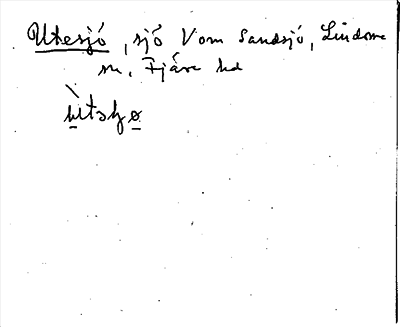 Utesjö, sjö V om Sandsjö, Lindome
sn, Fjäre hd
ùtəʂɧø